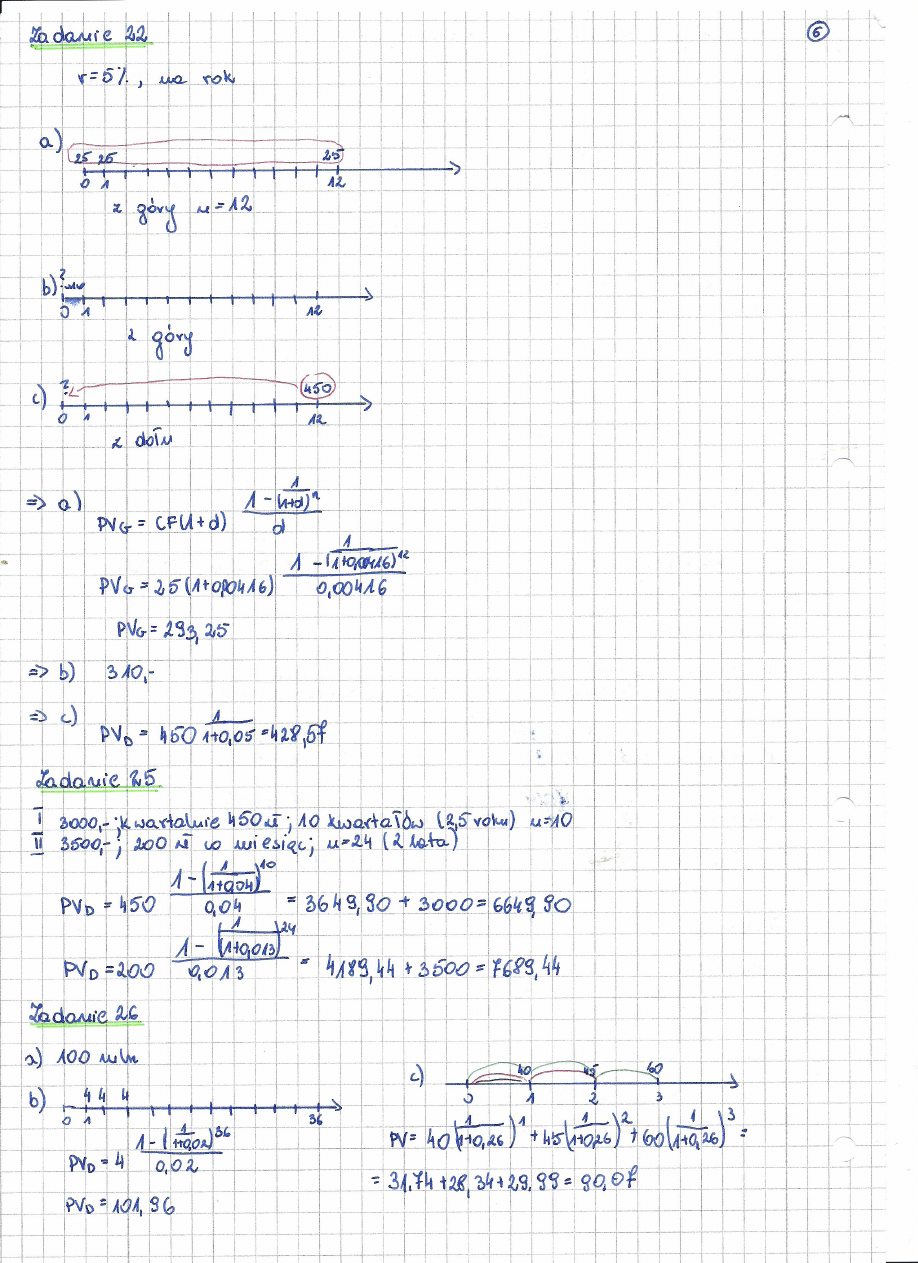 Zadanie 22
6
r=5%, na rok
a)
25 25 25
0 1 12
z góry n=12
b)
?
0 1 12
z góry
c)
? 450
0 1 12
z dołu
=> a) PV_G = CF(1+d) \frac{1-\frac{1}{(1+d)^n}}{d}
PV_G = 25(1+0,00416) \frac{1-(\frac{1}{1+0,00416})^{12}}{0,00416}
PV_G = 293,25
=> b) 310,-
=> c) PV_D = 450 \frac{1}{1+0,05} = 428,57
Zadanie 25
I 3000,-; kwartalnie 450 zł; 10 kwartałów (2,5 roku) n=10
II 3500,-; 200 zł co miesiąc; n=24 (2 lata)
PV_D = 450 \frac{1-(\frac{1}{1+0,04})^{10}}{0,04} = 3649,90 + 3000 = 6649,90
PV_D = 200 \frac{1-(\frac{1}{1+0,013})^{24}}{0,013} = 4189,44 + 3500 = 7689,44
Zadanie 26
a) 100 mln
b)
4 4 4
0 1 36
PV_D = 4 \frac{1-(\frac{1}{1+0,02})^{36}}{0,02}
PV_D = 101,96
c)
40 45 60
0 1 2 3
PV = 40(\frac{1}{1+0,26})^1 + 45(\frac{1}{1+0,26})^2 + 60(\frac{1}{1+0,26})^3 =
= 31.74 + 28,34 + 29.99 = 90,07